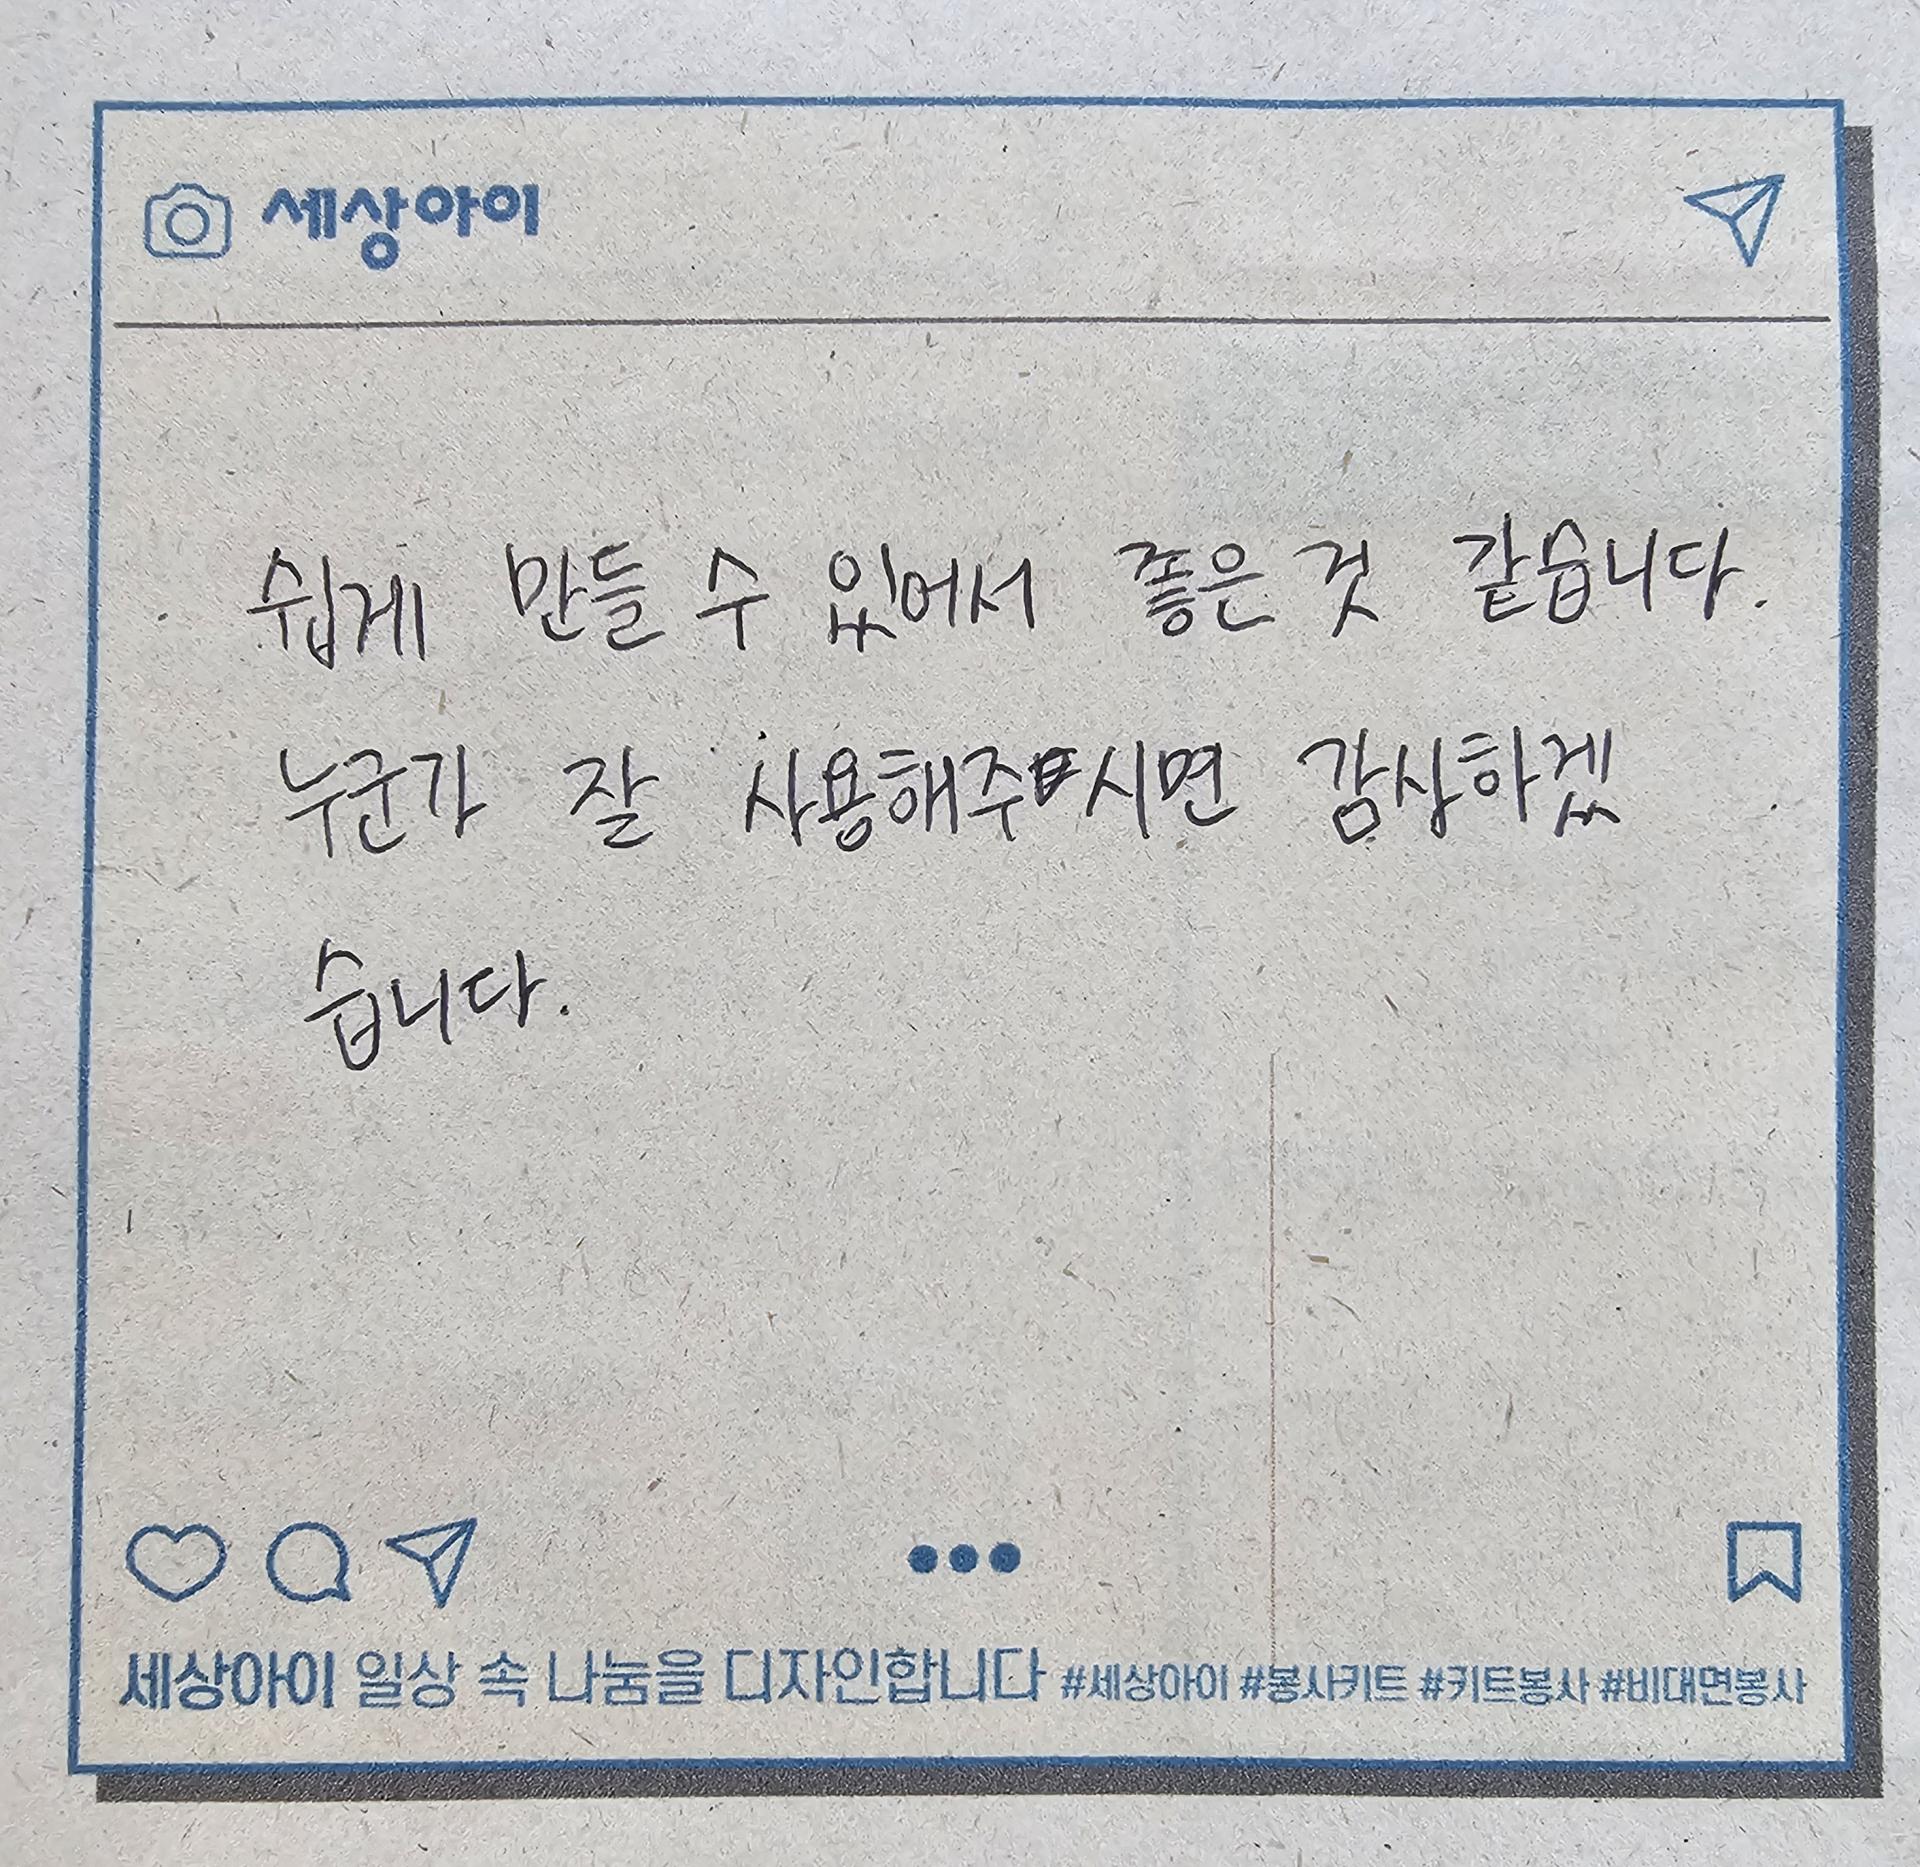 세상아이
쉽게 만들 수 있어서 좋은 것 같습니다.
누군가 잘 사용해주시면 감사하겠
습니다.
세상아이 일상 속 나눔을 디자인합니다 #세상아이 #봉사키트 #키트봉사 #비대면봉사